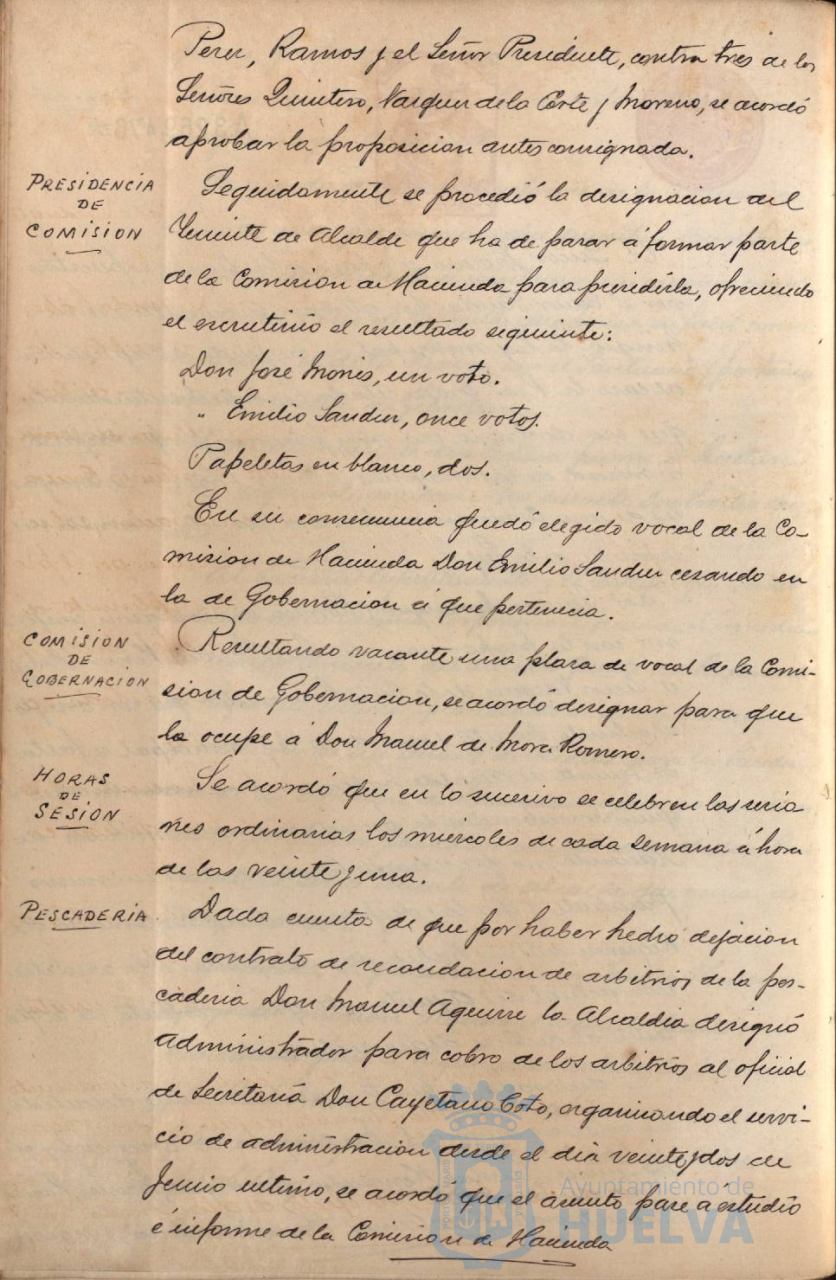 Perez, Ramos y el Señor Presidente, contra tres de los
Señores Quintero, Vazquez de la Corte y Moreno, se acordó
aprobar la proposicion antes consignada.
PRESIDENCIA
DE
COMISION
Seguidamente se procedió la designacion del
Teniente de Alcalde que ha de pasar á formar parte
de la Comision de Hacienda para presidirla, ofreciendo
el escrutinio el resultado siguiente:
Don José Monis, un voto.
" Emilio Sanchez, once votos.
Papeletas en blanco, dos.
En su consecuencia quedó elegido vocal de la Co-
mision de Hacienda Don Emilio Sanchez cesando en
la de Gobernacion á que pertenecia.
COMISION
DE
GOBERNACION
Resultando vacante una plaza de vocal de la Comi-
sion de Gobernacion, se acordó designar para que
la ocupe á Don Manuel de Mora Romero.
HORAS
DE
SESION
Se acordó que en lo sucesivo se celebren las sesio
nes ordinarias los miércoles de cada semana á hora
de las veinte y una.
PESCADERIA
Dada cuenta de que por haber hecho dejacion
del contrato de recaudacion de arbitrios de la pes-
caderia Don Manuel Aguirre la Alcaldia designó
Administrador para cobro de los arbitrios al oficial
de Secretaria Don Cayetano Coto, organizando el servi-
cio de administracion desde el dia veinte y dos de
Junio ultimo, se acordó que el asunto pase á estudio
é informe de la Comision de Hacienda
Ayuntamiento de
HUELVA